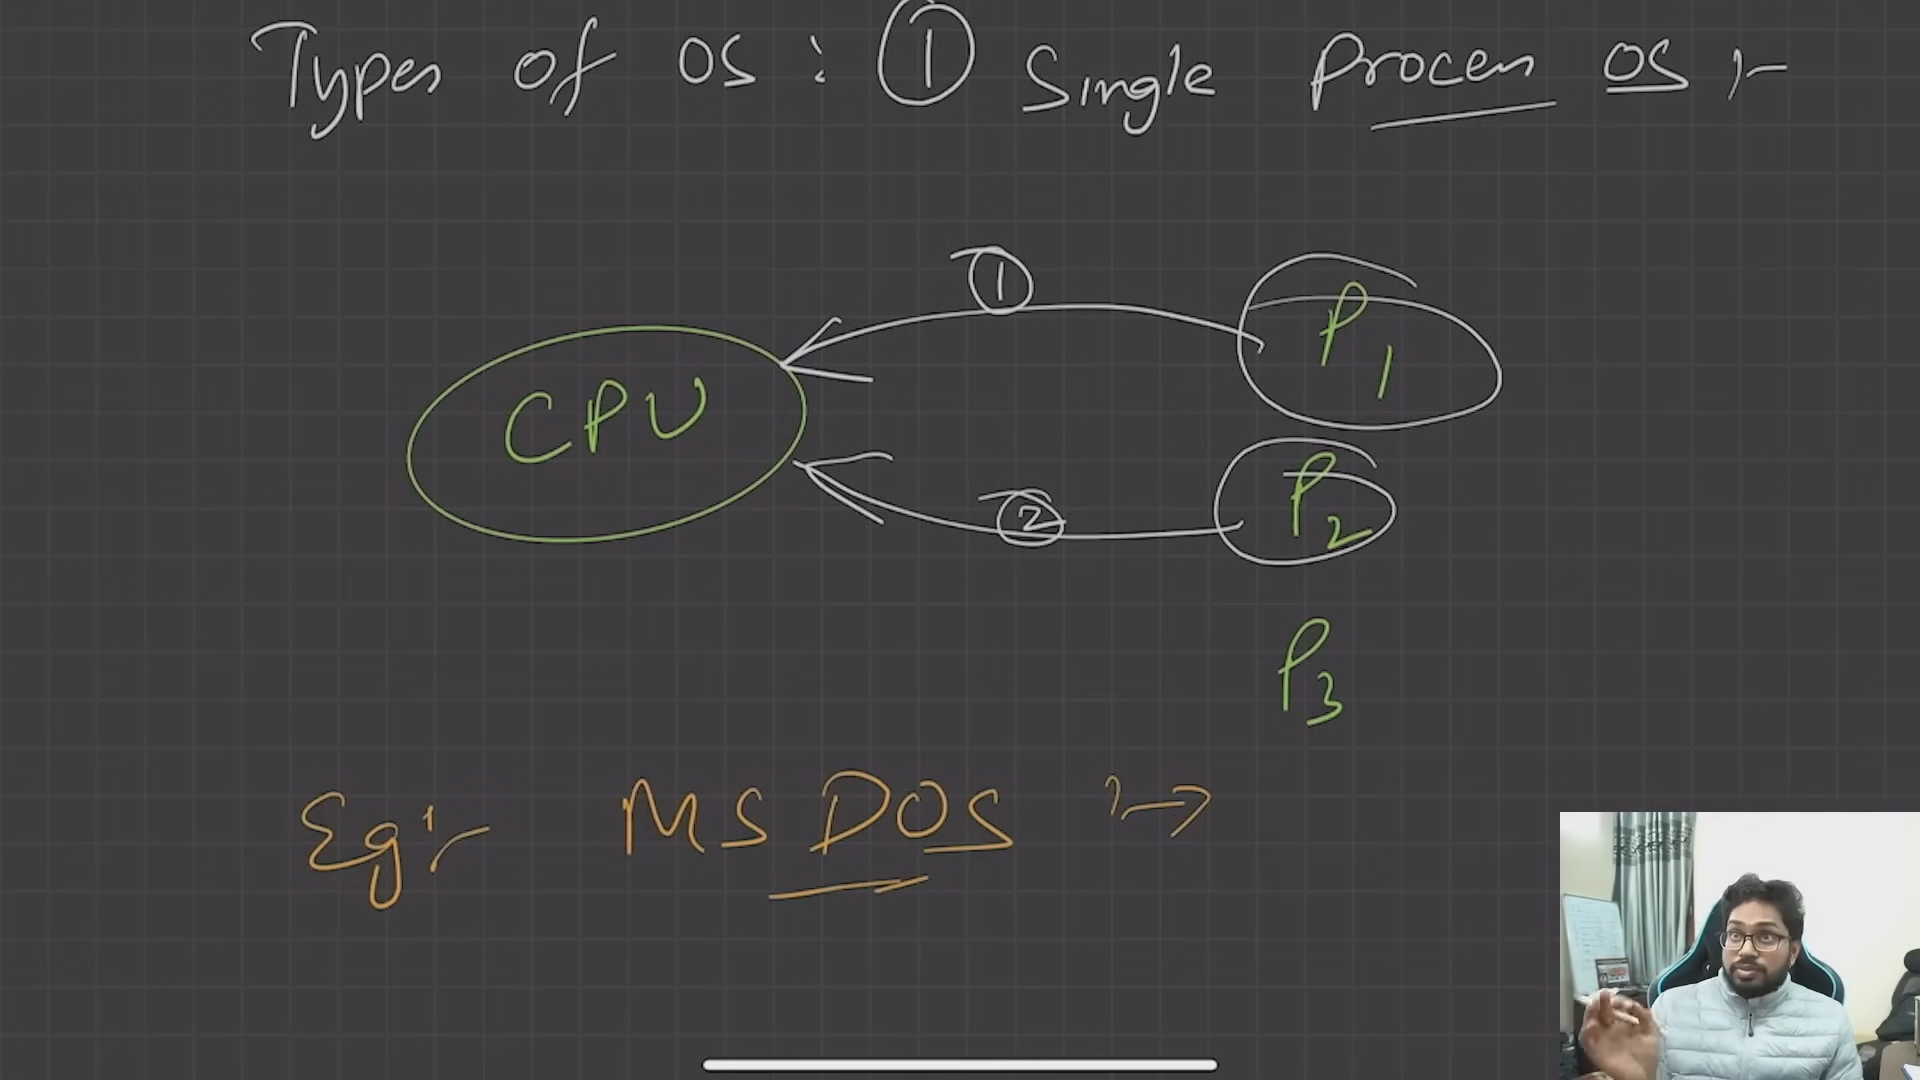 Types of OS : ① Single Process OS :-
①
P1
CPU
②
P2
P3
Eg:- MS DOS :→